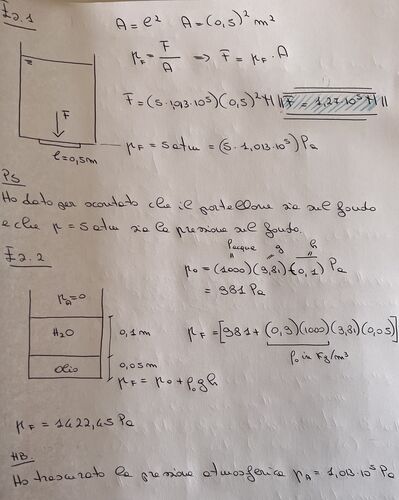 Es. 1
A = l² A = (0,5)² m²
p_F = F/A ⇒ F = p_F · A
F = (5·1,013·10⁵)(0,5)² N || F = 1,27·10⁵ N ||
F
l = 0,5 m
p_F = 5 atm = (5·1,013·10⁵) Pa
PS
Ho dato per scontato che il portellone sia sul fondo
e che p = 5 atm sia la pressione sul fondo.
Es. 2
ρacqua g h
p₀ = (1000)(9,81)(0,1) Pa
= 981 Pa
p_A = 0
H₂O
0,1 m
p_F = [981 + (0,9)(1000)(9,81)(0,05)]
ρ₀ in Kg/m³
Olio
0,05 m
p_F = p₀ + ρ₀gh
p_F = 1422,45 Pa
NB.
Ho trascurato la pressione atmosferica p_A = 1,013·10⁵ Pa